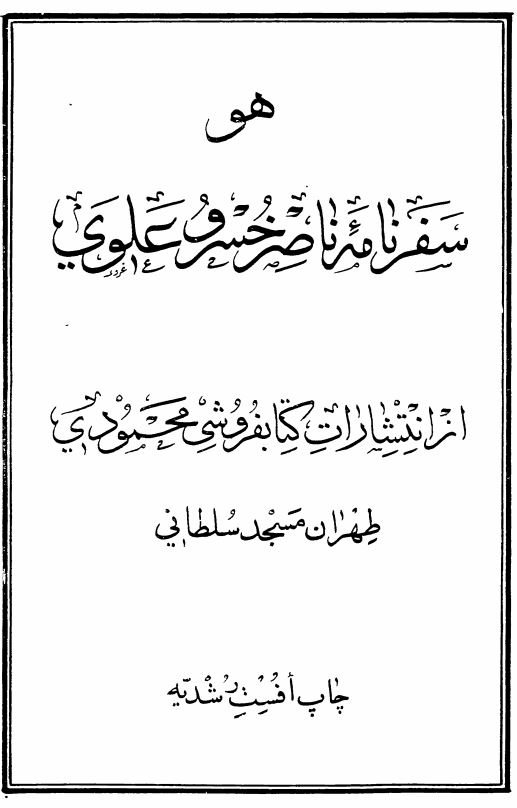 هو
سَفَرنامَهٔ ناصِرخُسرو عَلَوي
از انْتِشاراتِ كِتابفُروشيِ مَحمُودي
طِهْران مَسْجِد سُلطاني
چاپ أفْسِتِ رُشْدِيّه